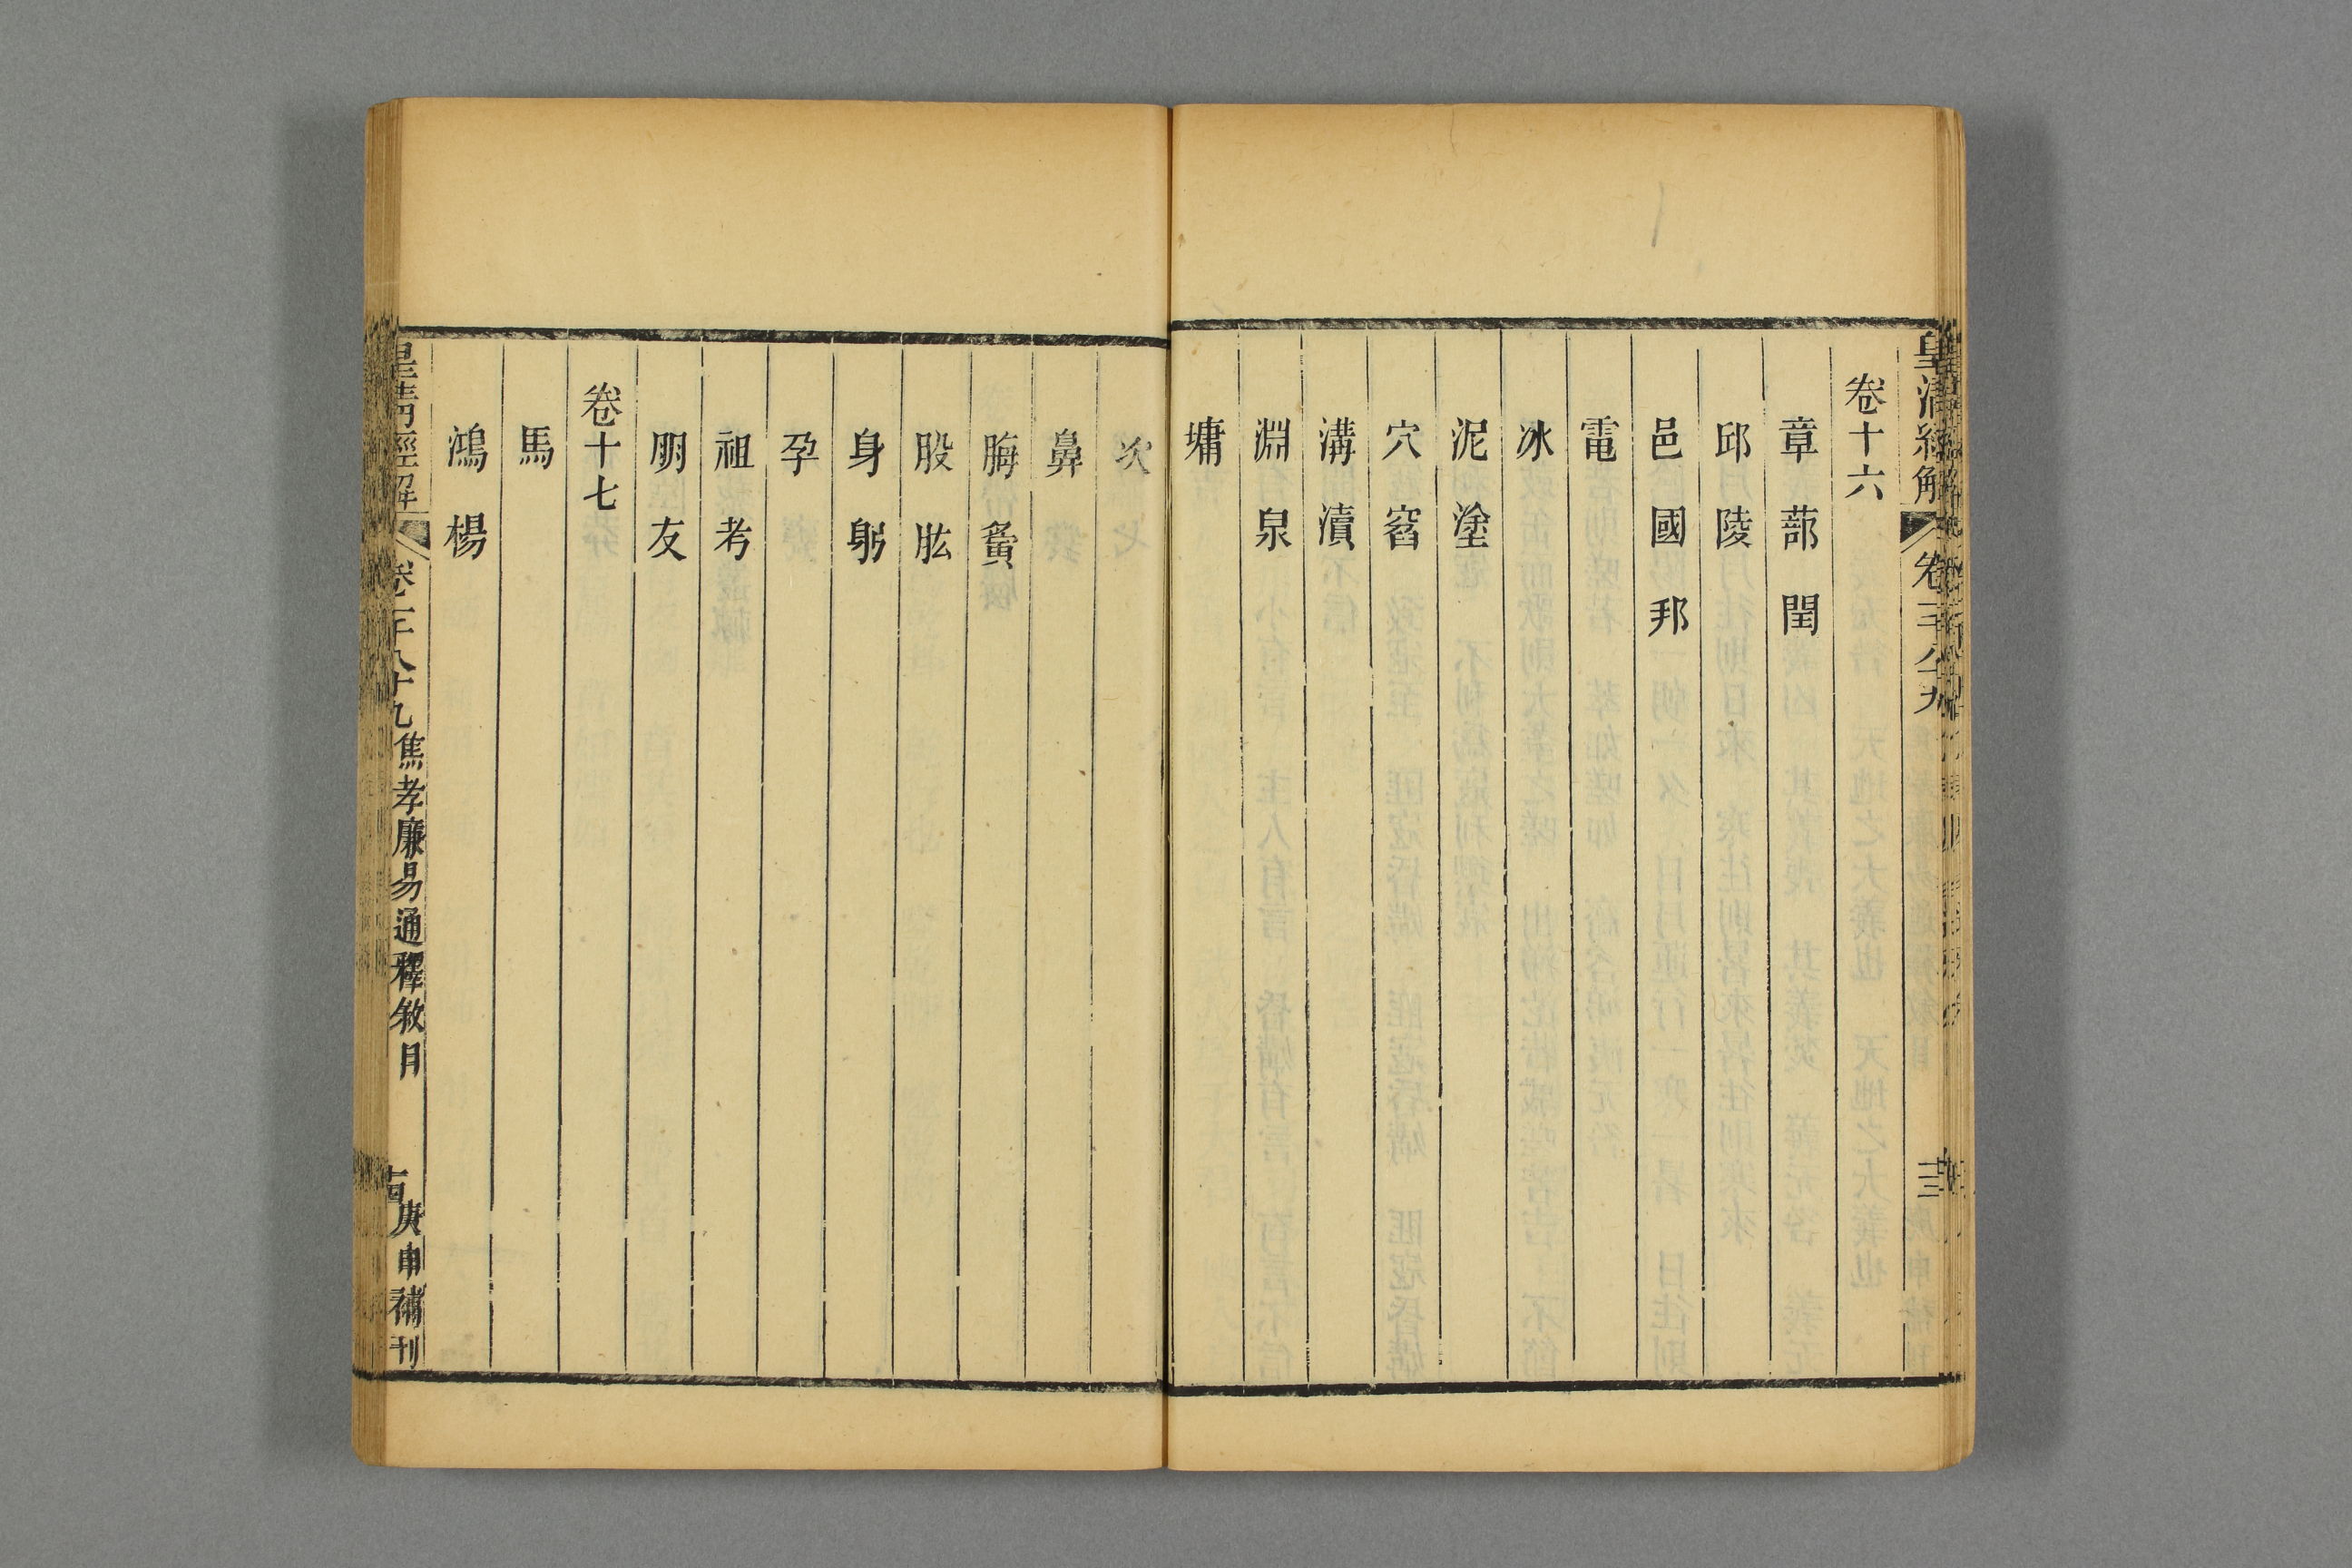 皇清經解
卷千八十九
三
卷十六
章蔀閏
邱陵
邑國邦
電
冰
泥塗
穴窞
溝瀆
淵泉
墉
次
鼻
脢夤
股肱
身躬
孕
祖考
朋友
卷十七
馬
鴻楊
皇清經解
卷一千八十九焦孝廉易通釋敘目
庚申補刊